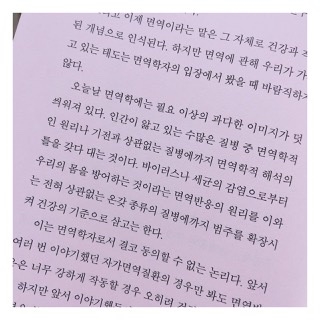 이제 면역이라는 말은 그 자체로 건강과
된 개념으로 인식된다. 하지만 면역에 관해 우리가 가
고 있는 태도는 면역학자의 입장에서 봤을 때 바람직하지
않다.
오늘날 면역학에는 필요 이상의 과다한 이미지가 덧
씌워져 있다. 인간이 앓고 있는 수많은 질병 중 면역학적
인 원리나 기전과 상관없는 질병에까지 면역학적 해석의
틀을 갖다 대는 것이다. 바이러스나 세균의 감염으로부터
우리의 몸을 방어하는 것이라는 면역반응의 원리를 이와
는 전혀 상관없는 온갖 종류의 질병에까지 범주를 확장시
켜 건강의 기준으로 삼고는 한다.
이는 면역학자로서 결코 동의할 수 없는 논리다. 앞서
여러 번 이야기했던 자가면역질환의 경우만 봐도 면역반
은 너무 강하게 작동할 경우 오히려
하지만 앞서 이야기했듯